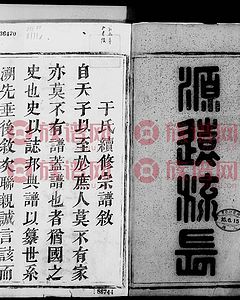 源遠流長
于氏續修宗譜敘
自天子以至於庶人莫不有家
亦莫不有譜蓋譜也者猶國之
史也史以誌邦典譜以纂世系
溯先垂後敘次聯親誠言該而
86744